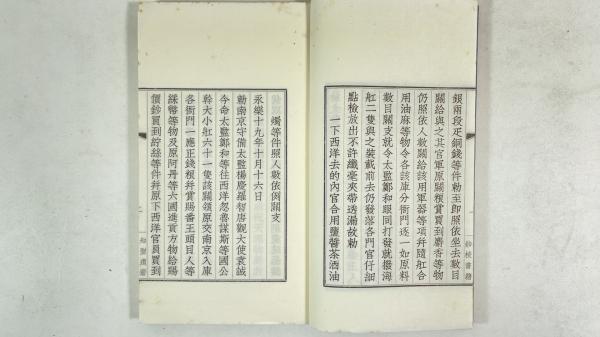 銀兩段疋銅錢等件勅至即照依坐去數目
關給與之其官軍原關糧賞買到麝香等物
仍照依人數關給該用軍器等項并隨舡合
用油麻等物令各該庫分衙門逐一如原料
數目關支就令太監鄭和眼同打發就撥海
舡二隻與之裝載前去仍發落各門官仔細
點檢放出不許纖毫夾帶透漏故勅
一下西洋去的內官合用鹽醬茶酒油
燭等件照人數依例關支
永樂十九年十月十六日
勅南京守備太監楊慶羅智唐觀大使袁誠
今命太監鄭和等往西洋忽魯謨斯等國公
幹大小舡六十一隻該關領原交南京入庫
各衙門一應正錢糧并賞賜番王頭目人等
綵幣等物及原阿丹等六國進貢方物給賜
價鈔買到紵絲等件并原下西洋官員買到